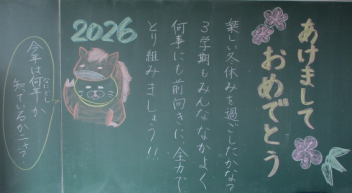 あけまして
おめでとう
楽しい冬休みを過ごしたかな
3学期もみんななかよく
何事にも前向きに全力で
とり組みましょう!!
2026
今年は何年か
知っているかニャ?